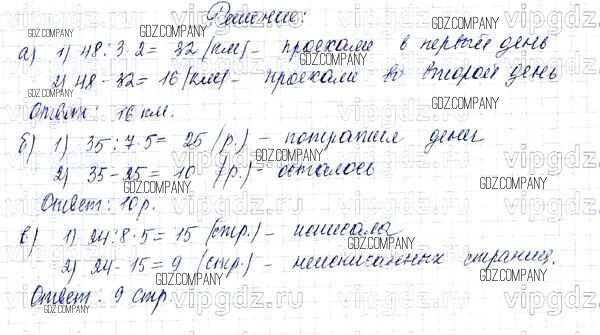 Решение:
а) 1) 48 : 3 · 2 = 32 (км) – проехали в первый день
2) 48 - 32 = 16 (км) – проехали во второй день
Ответ: 16 км.
б) 1) 35 : 7 · 5 = 25 (р.) – потратил денег
2) 35 - 25 = 10 (р.) – осталось
Ответ: 10 р.
в) 1) 24 : 8 · 5 = 15 (стр.) – исписала
2) 24 - 15 = 9 (стр.) – неисписанных страниц.
Ответ: 9 стр.